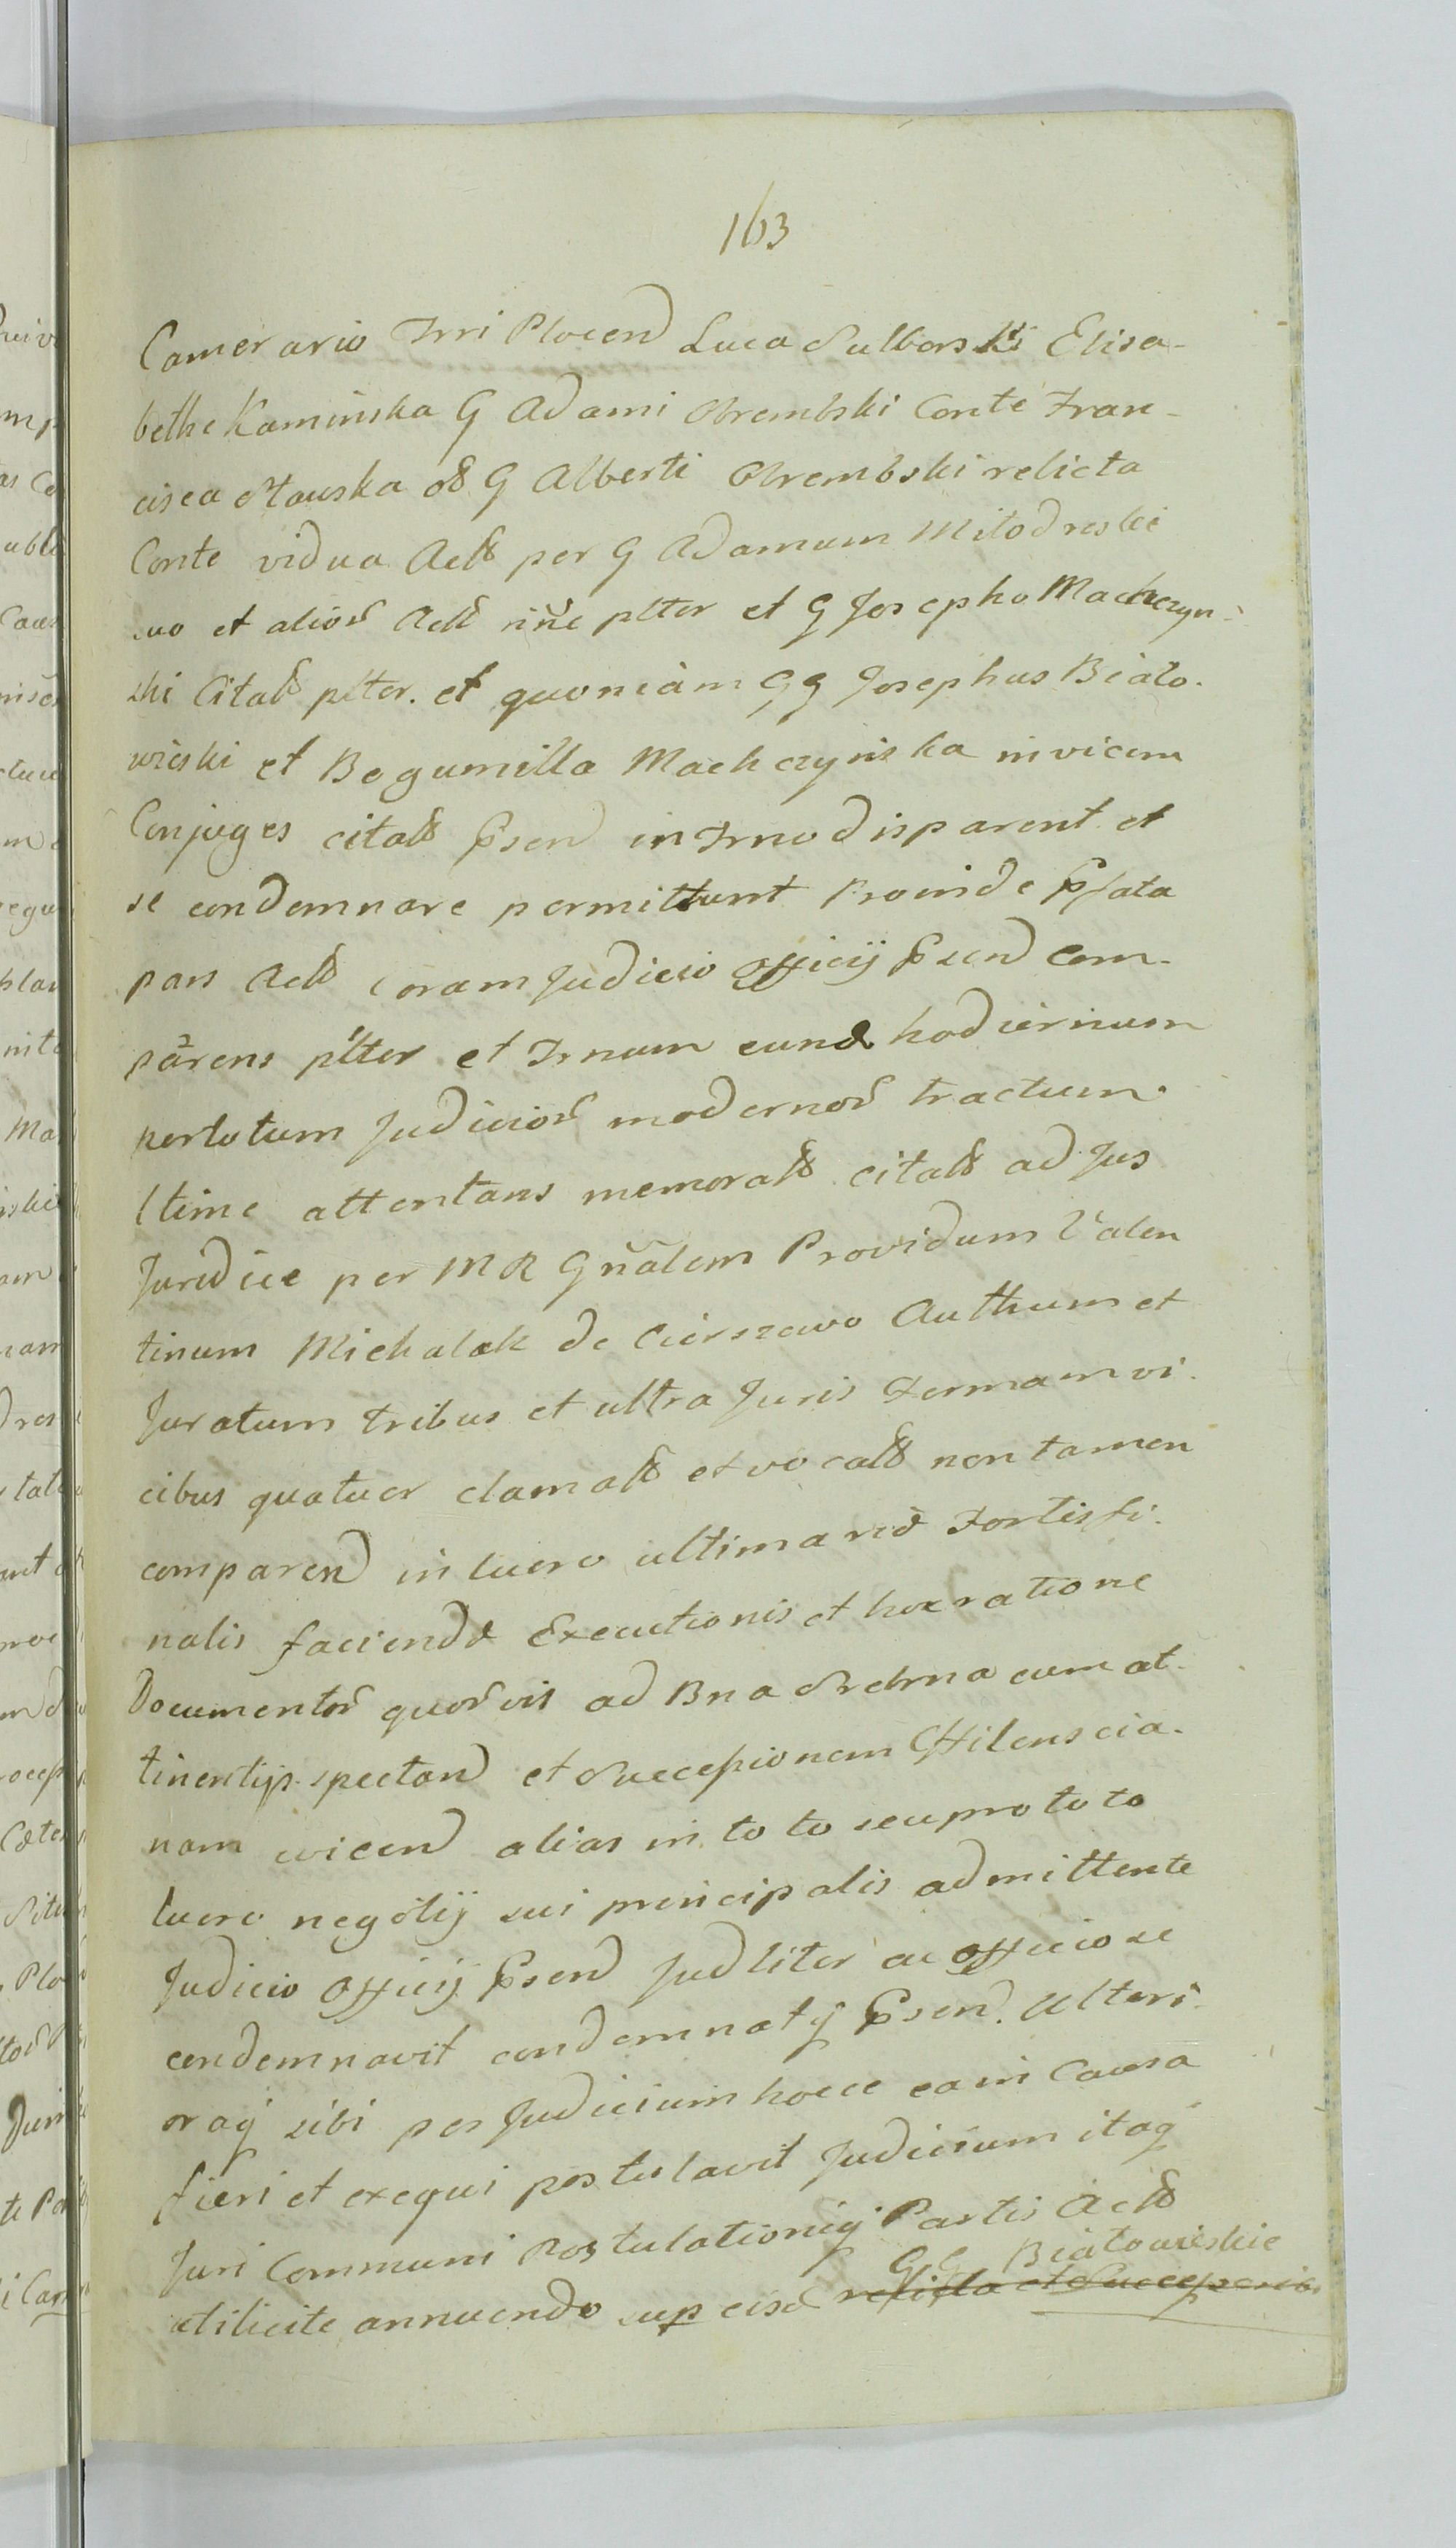 163
Camerario Trri Plocen Luca Sulborski Elisa-
bethe Kaminska G Adami Obrembski Conte Fran-
cisca Stauska oƷ G Alberti Obrembski relicta
Conte vidua Act per G Adamum Mitodreski
suo et alior Act nñe plter et G Josepho Machczyn-
ski Citat plter. et quoniam GG Josephus Biało-
wieski et Bogumilla Machczynska invicem
Conjuges citat Psen in Trno disparent et
se condemnare permittunt Proinde Pfata
pars Act coram Judicio Officij Psen com-
parens plter et Trnum eund hodiernum
pertotum Judicior modernor tractum
ltime attentans memorat citat ad Jus
Juridice per MR Gñalem Providum Valen
tinum Michalak de Cierszewo Authum et
Juratum tribus et ultra Juris Formam vi-
cibus quatuor clamat et vocat non tamen
comparen in lucro ultimarie Fortissi-
nalis faciende Executionis et hoc ratione
Documentor quorvis ad Bna Srebrna cum at-
tinentijs spectan et Successionem Hilenscia-
nam wicen alias in toto seu pro toto
lucro negotij sui principalis admittente
Judicio Officij Psen Judliter ac officiose
condemnavit condemnatq Psen. Ulteri-
oraq sibi per Judicium hocce ea in Causa
fieri et exequi postulavit Judicium itaq
Juri Communi Postulationiq Partis Act
GG Białowieskie
utilicite annuendo sup eisd relicta et Successoribus